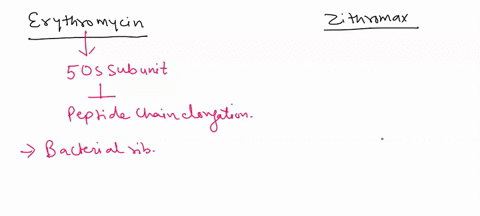 Erythromycin
Zithromax
50s subunit
Peptide chain elongation.
→ Bacterial rib.